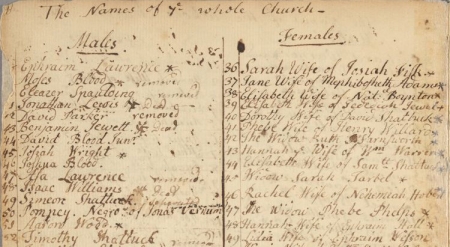 The Names of ye whole Church
Males
Ephraim Lawrence
Moses Blood removed
Eleazer Spaulding removed
Jonathan Lewis Dead
42 David Parker removed
43 Benjamin Jewell Dead
44 David Blood Junr
45 Josiah Wright
Joshua Blood
47 Asa Lawrence removed
48 Isaac Williams
49 Simeon Shattuck
50 Pompey Negro of Jonas Varnum
51 Aaron Wood
Timothy Shattuck
Females
36 Sarah Wife of Josiah Fisk
37 Jane Wife of Mephibosheth Adams
38 Elisabeth Wife of Nat. Boynton
39 Elisabeth Wife of Jedediah Jewel
40 Dorothy Wife of David Shattuck
41 Phebe Wife of Henry Willard
42 The Widow Ruth Farnsworth
43 Hannah Wife of Warren
44 Elisabeth Wife of Samll Shattuck
45 Widow Sarah Tarbel
46 Rachel Wife of Nehemiah Hobart
47 The Widow Phebe Phelps
48 Hannah Wife of Ephraim Hall
49 Lidia Wife of Ephraim